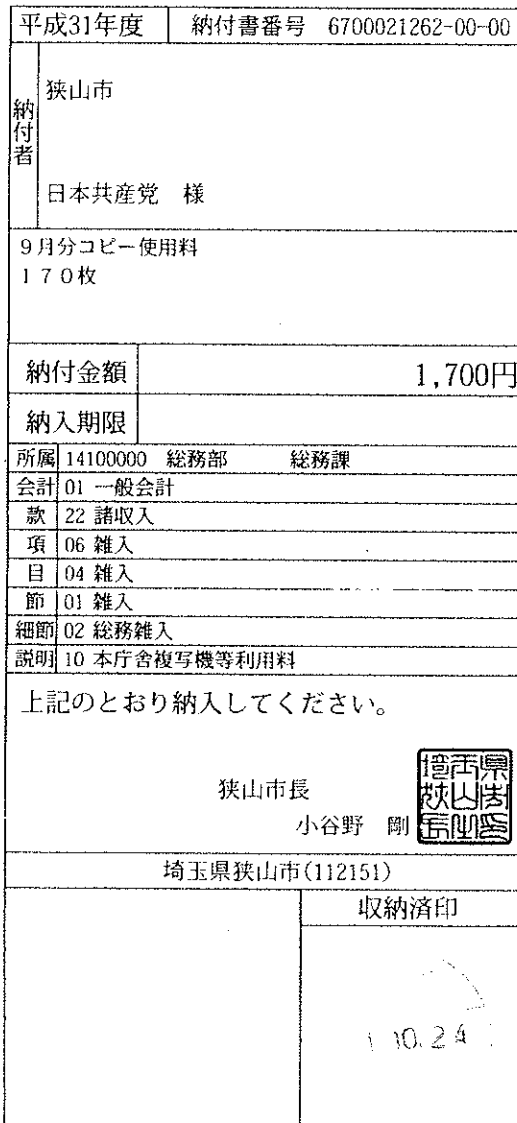 平成31年度 納付書番号 6700021262-00-00
納付者
狭山市
日本共産党 様
9月分コピー使用料
170枚
納付金額 1,700円
納入期限
所属 14100000 総務部 総務課
会計 01 一般会計
款 22 諸収入
項 06 雑入
目 04 雑入
節 01 雑入
細節 02 総務雑入
説明 10 本庁舎複写機等利用料
上記のとおり納入してください。
狭山市長
小谷野 剛
埼玉県狭山市(112151)
収納済印
1 10.24